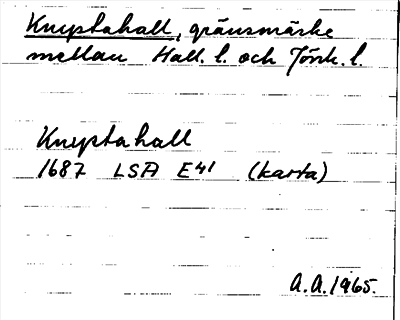 Knyptahall, gränsmärke
mellan Hall. l. och Jönk. l.
Knyptahall
1687 LSA E41 (karta)
A.A. 1965.